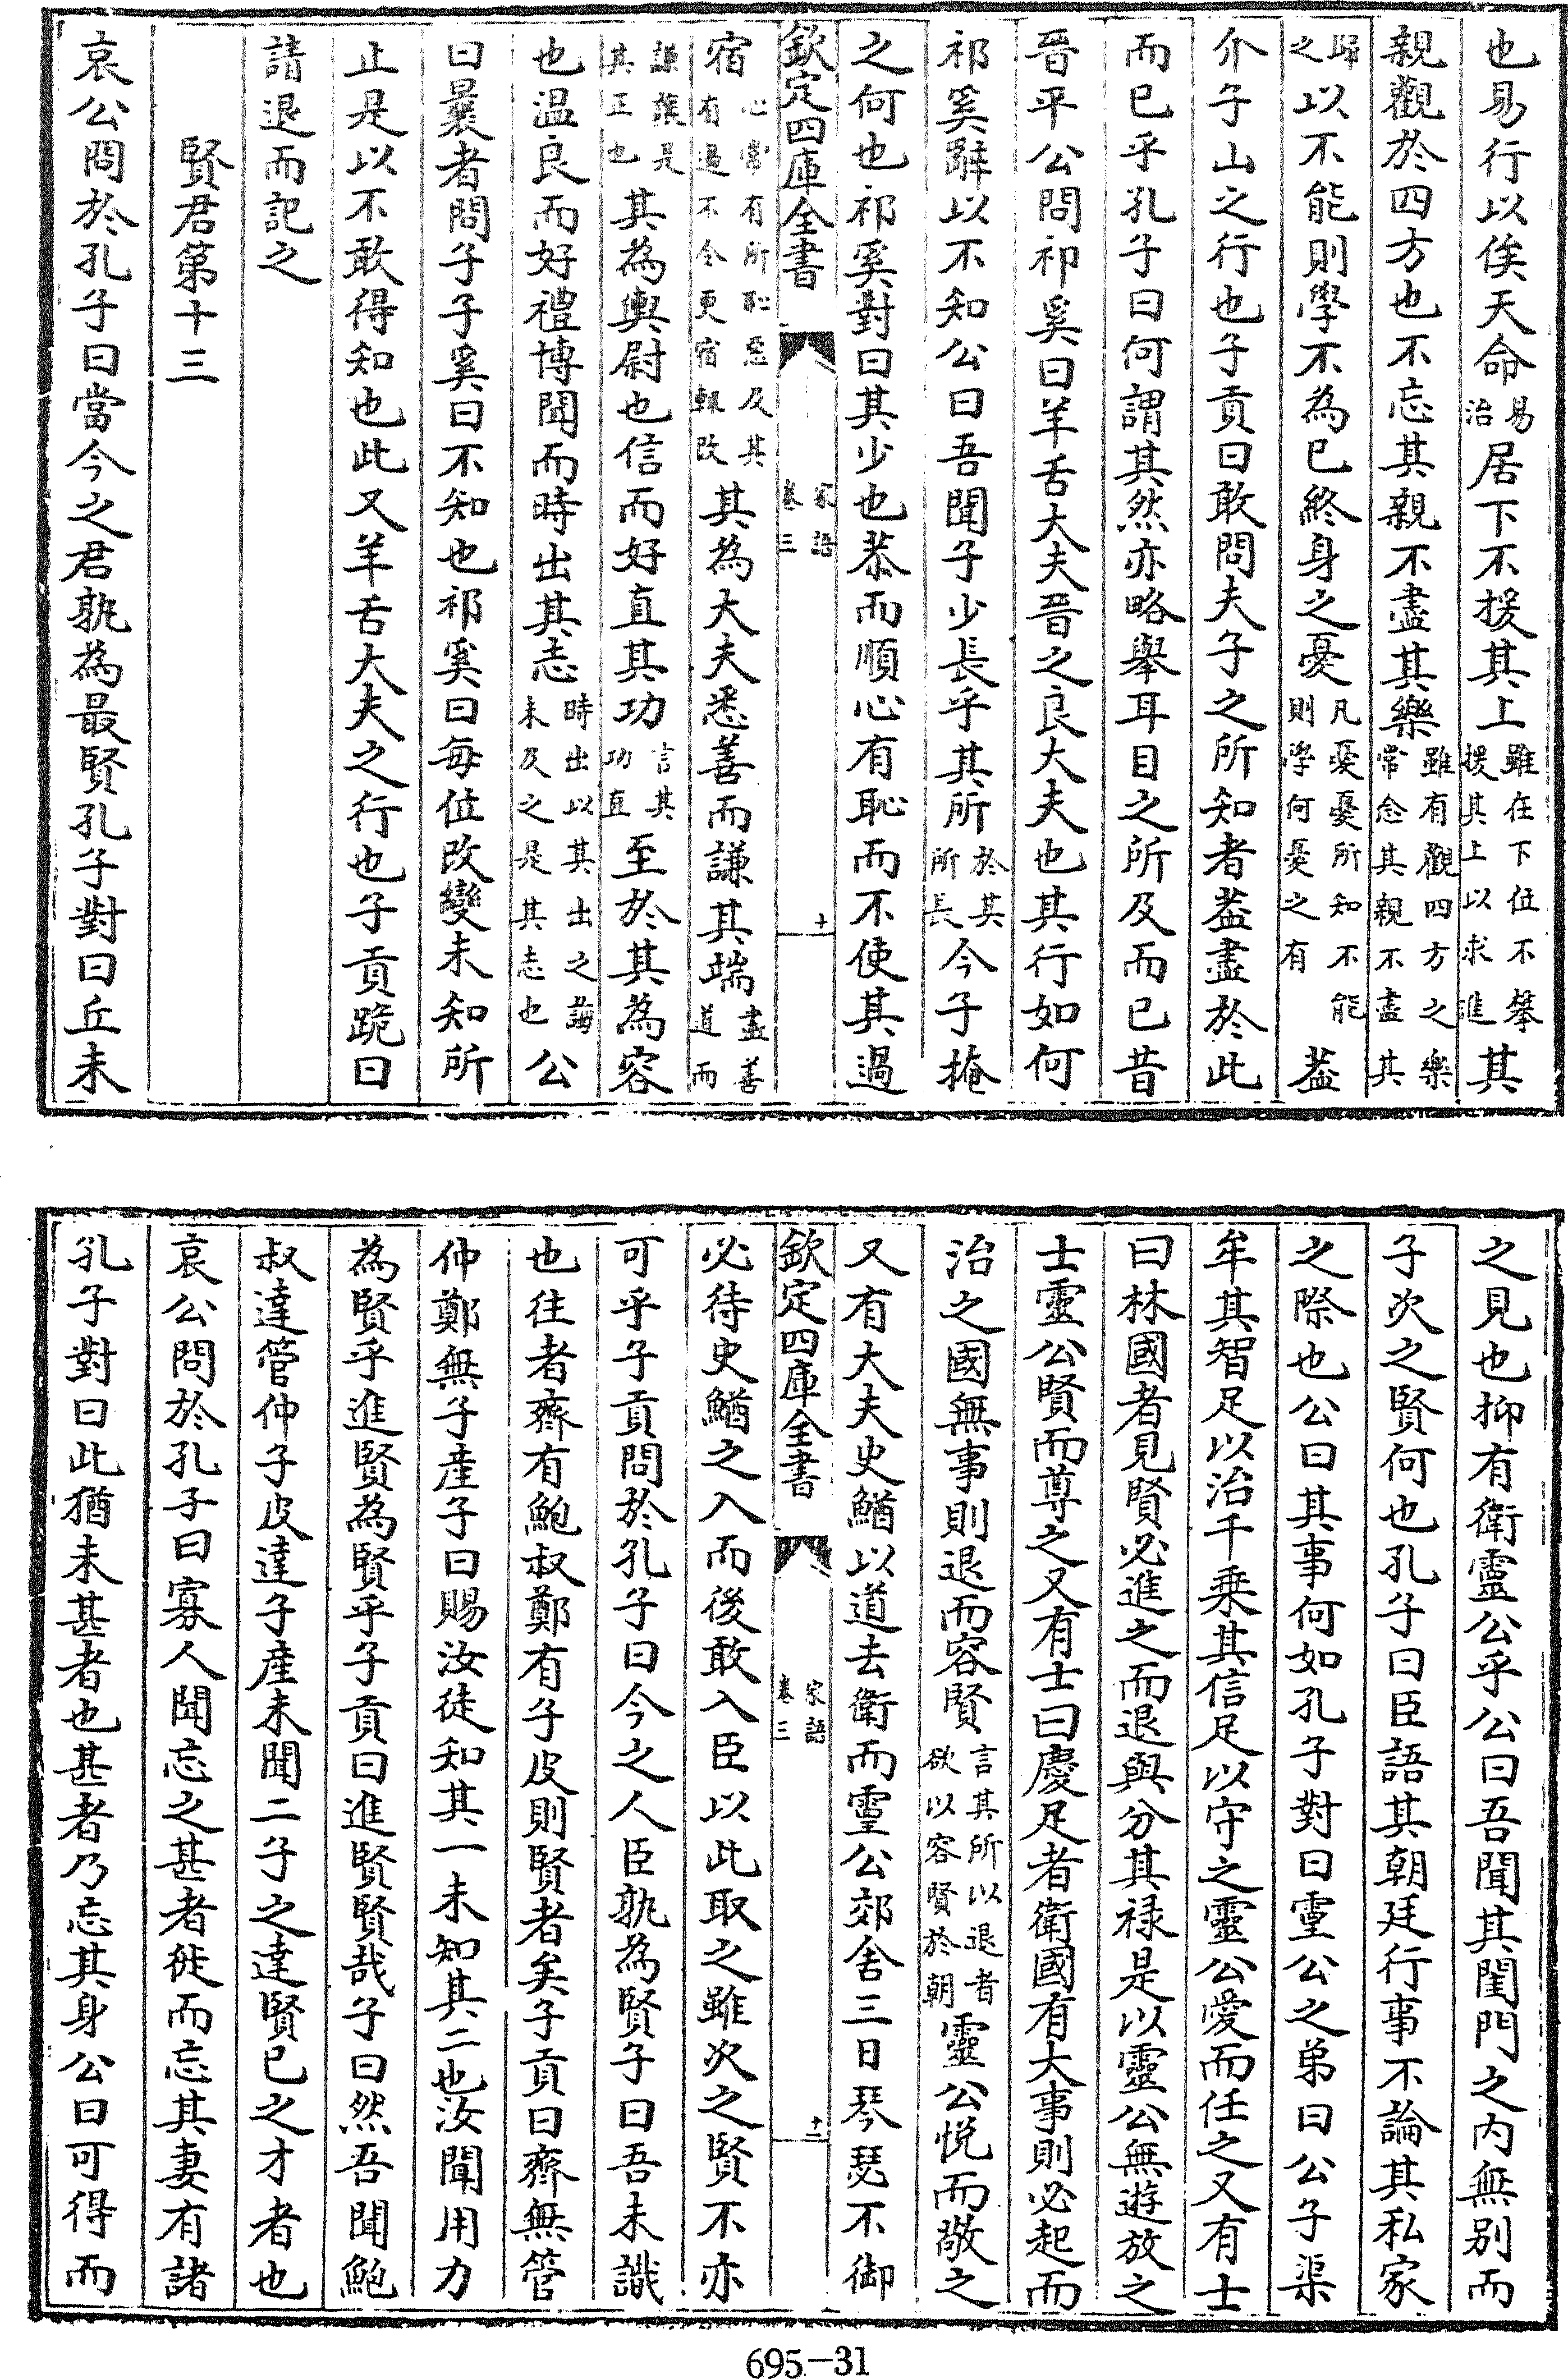 也易行以俟天命易治居下不援其上雖在下位不攀援其上以求進其
親觀於四方也不忘其親不盡其樂雖有觀四方之樂常念其親不盡其
歸之以不能則學不為已終身之憂凡憂憂所知不能則學何憂之有葢
介子山之行也子貢曰敢問夫子之所知者葢盡於此
而已乎孔子曰何謂其然亦略舉耳目之所及而已昔
晉平公問祁奚曰羊舌大夫晉之良大夫也其行如何
祁奚辭以不知公曰吾聞子少長乎其所於其所長今子掩
之何也祁奚對曰其少也恭而順心有恥而不使其過
欽定四庫全書
家語
卷三
十
宿心常有所恥惡及其有過不令更宿輒改其為大夫悉善而謙其端盡善道而
謙讓是其正也其為輿尉也信而好直其功言其功直至於其為容
也温良而好禮博聞而時出其志時出以其出之誨未及之是其志也公
曰曩者問子子奚曰不知也祁奚曰每位改變未知所
止是以不敢得知也此又羊舌大夫之行也子貢跪曰
請退而記之
賢君第十三
哀公問於孔子曰當今之君孰為最賢孔子對曰丘未
之見也抑有衛靈公乎公曰吾聞其閨門之内無别而
子次之賢何也孔子曰臣語其朝廷行事不論其私家
之際也公曰其事何如孔子對曰靈公之弟曰公子渠
牟其智足以治千乗其信足以守之靈公愛而任之又有士
曰林國者見賢必進之而退與分其禄是以靈公無遊放之
士靈公賢而尊之又有士曰慶足者衛國有大事則必起而
治之國無事則退而容賢言其所以退者欲以容賢於朝靈公悦而敬之
又有大夫史鰌以道去衛而靈公郊舍三日琴瑟不御
欽定四庫全書
家語
卷三
十一
必待史鰌之入而後敢入臣以此取之雖次之賢不亦
可乎子貢問於孔子曰今之人臣孰為賢子曰吾未識
也往者齊有鮑叔鄭有子皮則賢者矣子貢曰齊無管
仲鄭無子產子曰賜汝徒知其一未知其二也汝聞用力
為賢乎進賢為賢乎子貢曰進賢賢哉子曰然吾聞鮑
叔達管仲子皮達子產未聞二子之達賢已之才者也
哀公問於孔子曰寡人聞忘之甚者徙而忘其妻有諸
孔子對曰此猶未甚者也甚者乃忘其身公曰可得而
695-31